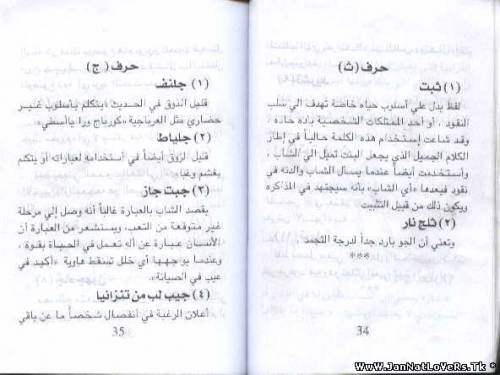 حرف (ث)
(١) ثبت
لفظ يدل علي أسلوب حياه خاصة تهدف الي سلب
النقود . أو أحد الممتلكات الشخصية باده حاده ،
وقد شاعت إستخدام هذه الكلمة حالياً في إطار
الكلام الجميل الذي يجعل البنت تميل الي الشاب ،
وأستخدمت أيضاً عندما يسأل الشاب والدته في
نقود فيعدها «أي الشاب» بانه سيجتهد في المذاكره
ويكون ذلك من قبيل التثبيت
(٢) ثلج نار
وتعني أن الجو بارد جداً لدرجة التجمد .
***
34
حرف (ج)
(١) جلنف
قليل الذوق في الحديث ايتكلم بأسلوب غير
حضاري مثل العرباجية «كورباج ورا ياأسطي»
(٢) جلياط
قليل الزوق أيضاً في أستخدامه لعباراته أو يتكلم
بغشم وغباء
(٣) جبت جاز
يقصد الشاب بالعبارة غالباً أنه وصل إلي مرحلة
غير متوقعة من التعب، ويستشعر من العبارة أن
الأنسان عبارة عن أله تعمل في الحياة بقوة ،
وعندما يوجهها أي خلل تسقط هاوية «أكيد في
عيب في الصيانة»
(٤) جيب لب من تنزانيا
أعلان الرغبة في أنفصال شخصاً ما عن باقي
35
WwW.JanNatLoVeRs.Tk *